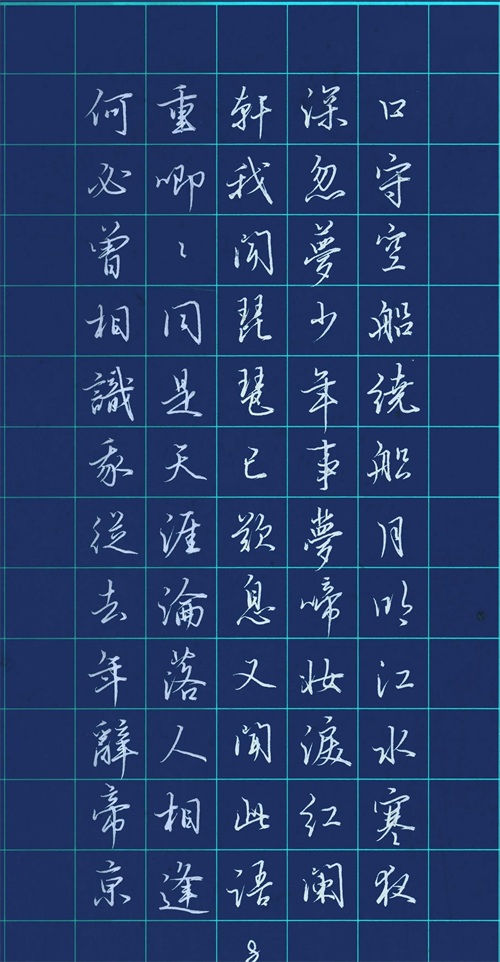 口守空船繞船月明江水寒夜
深忽夢少年事夢啼妝淚紅闌
軒我聞琵琶已歎息又聞此語
重唧〻同是天涯淪落人相逢
何必曾相識我從去年辭帝京
8